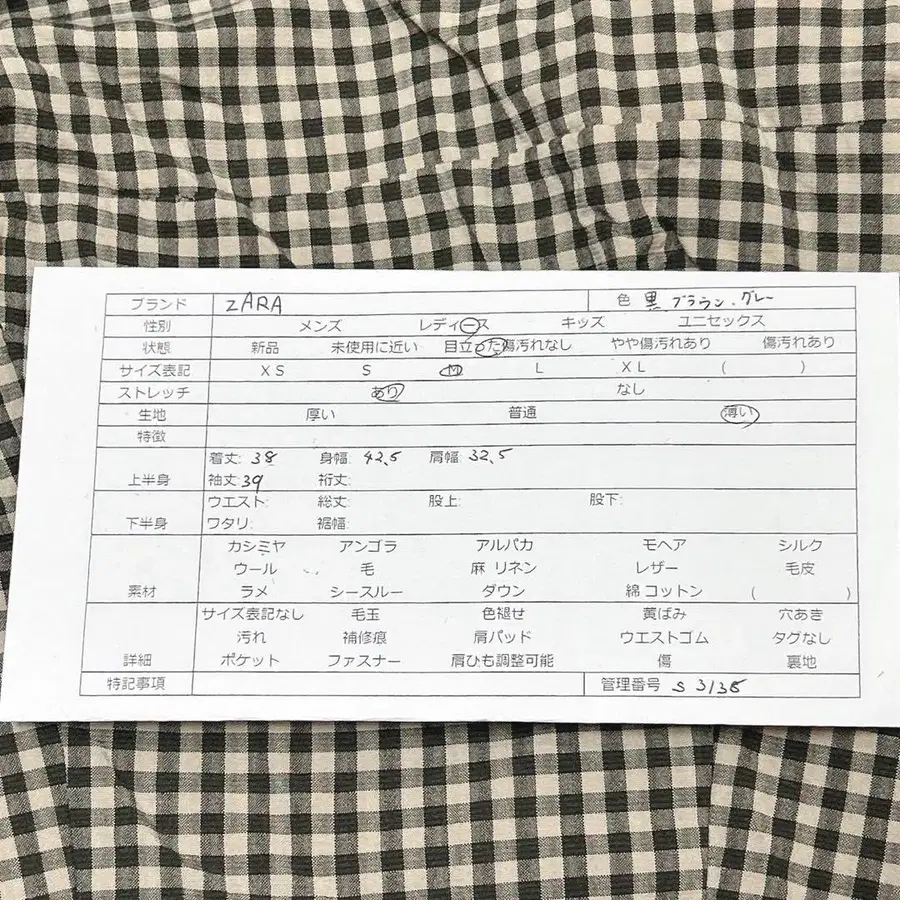 ブランド ZARA 色 黒 ブラウン・グレー
性別 メンズ レディース キッズ ユニセックス
状態 新品 未使用に近い 目立った傷汚れなし やや傷汚れあり 傷汚れあり
サイズ表記 XS S M L XL ( )
ストレッチ あり なし
生地 厚い 普通 薄い
特徴
上半身 着丈: 38 身幅: 42.5 肩幅: 32.5
袖丈: 39 裄丈:
下半身 ウエスト: 総丈: 股上: 股下:
ワタリ: 裾幅:
素材 カシミヤ アンゴラ アルパカ モヘア シルク
ウール 毛 麻 リネン レザー 毛皮
ラメ シースルー ダウン 綿 コットン ( )
詳細 サイズ表記なし 毛玉 色褪せ 黄ばみ 穴あき
汚れ 補修痕 肩パッド ウエストゴム タグなし
ポケット ファスナー 肩ひも調整可能 傷 裏地
特記事項 管理番号 S 3135